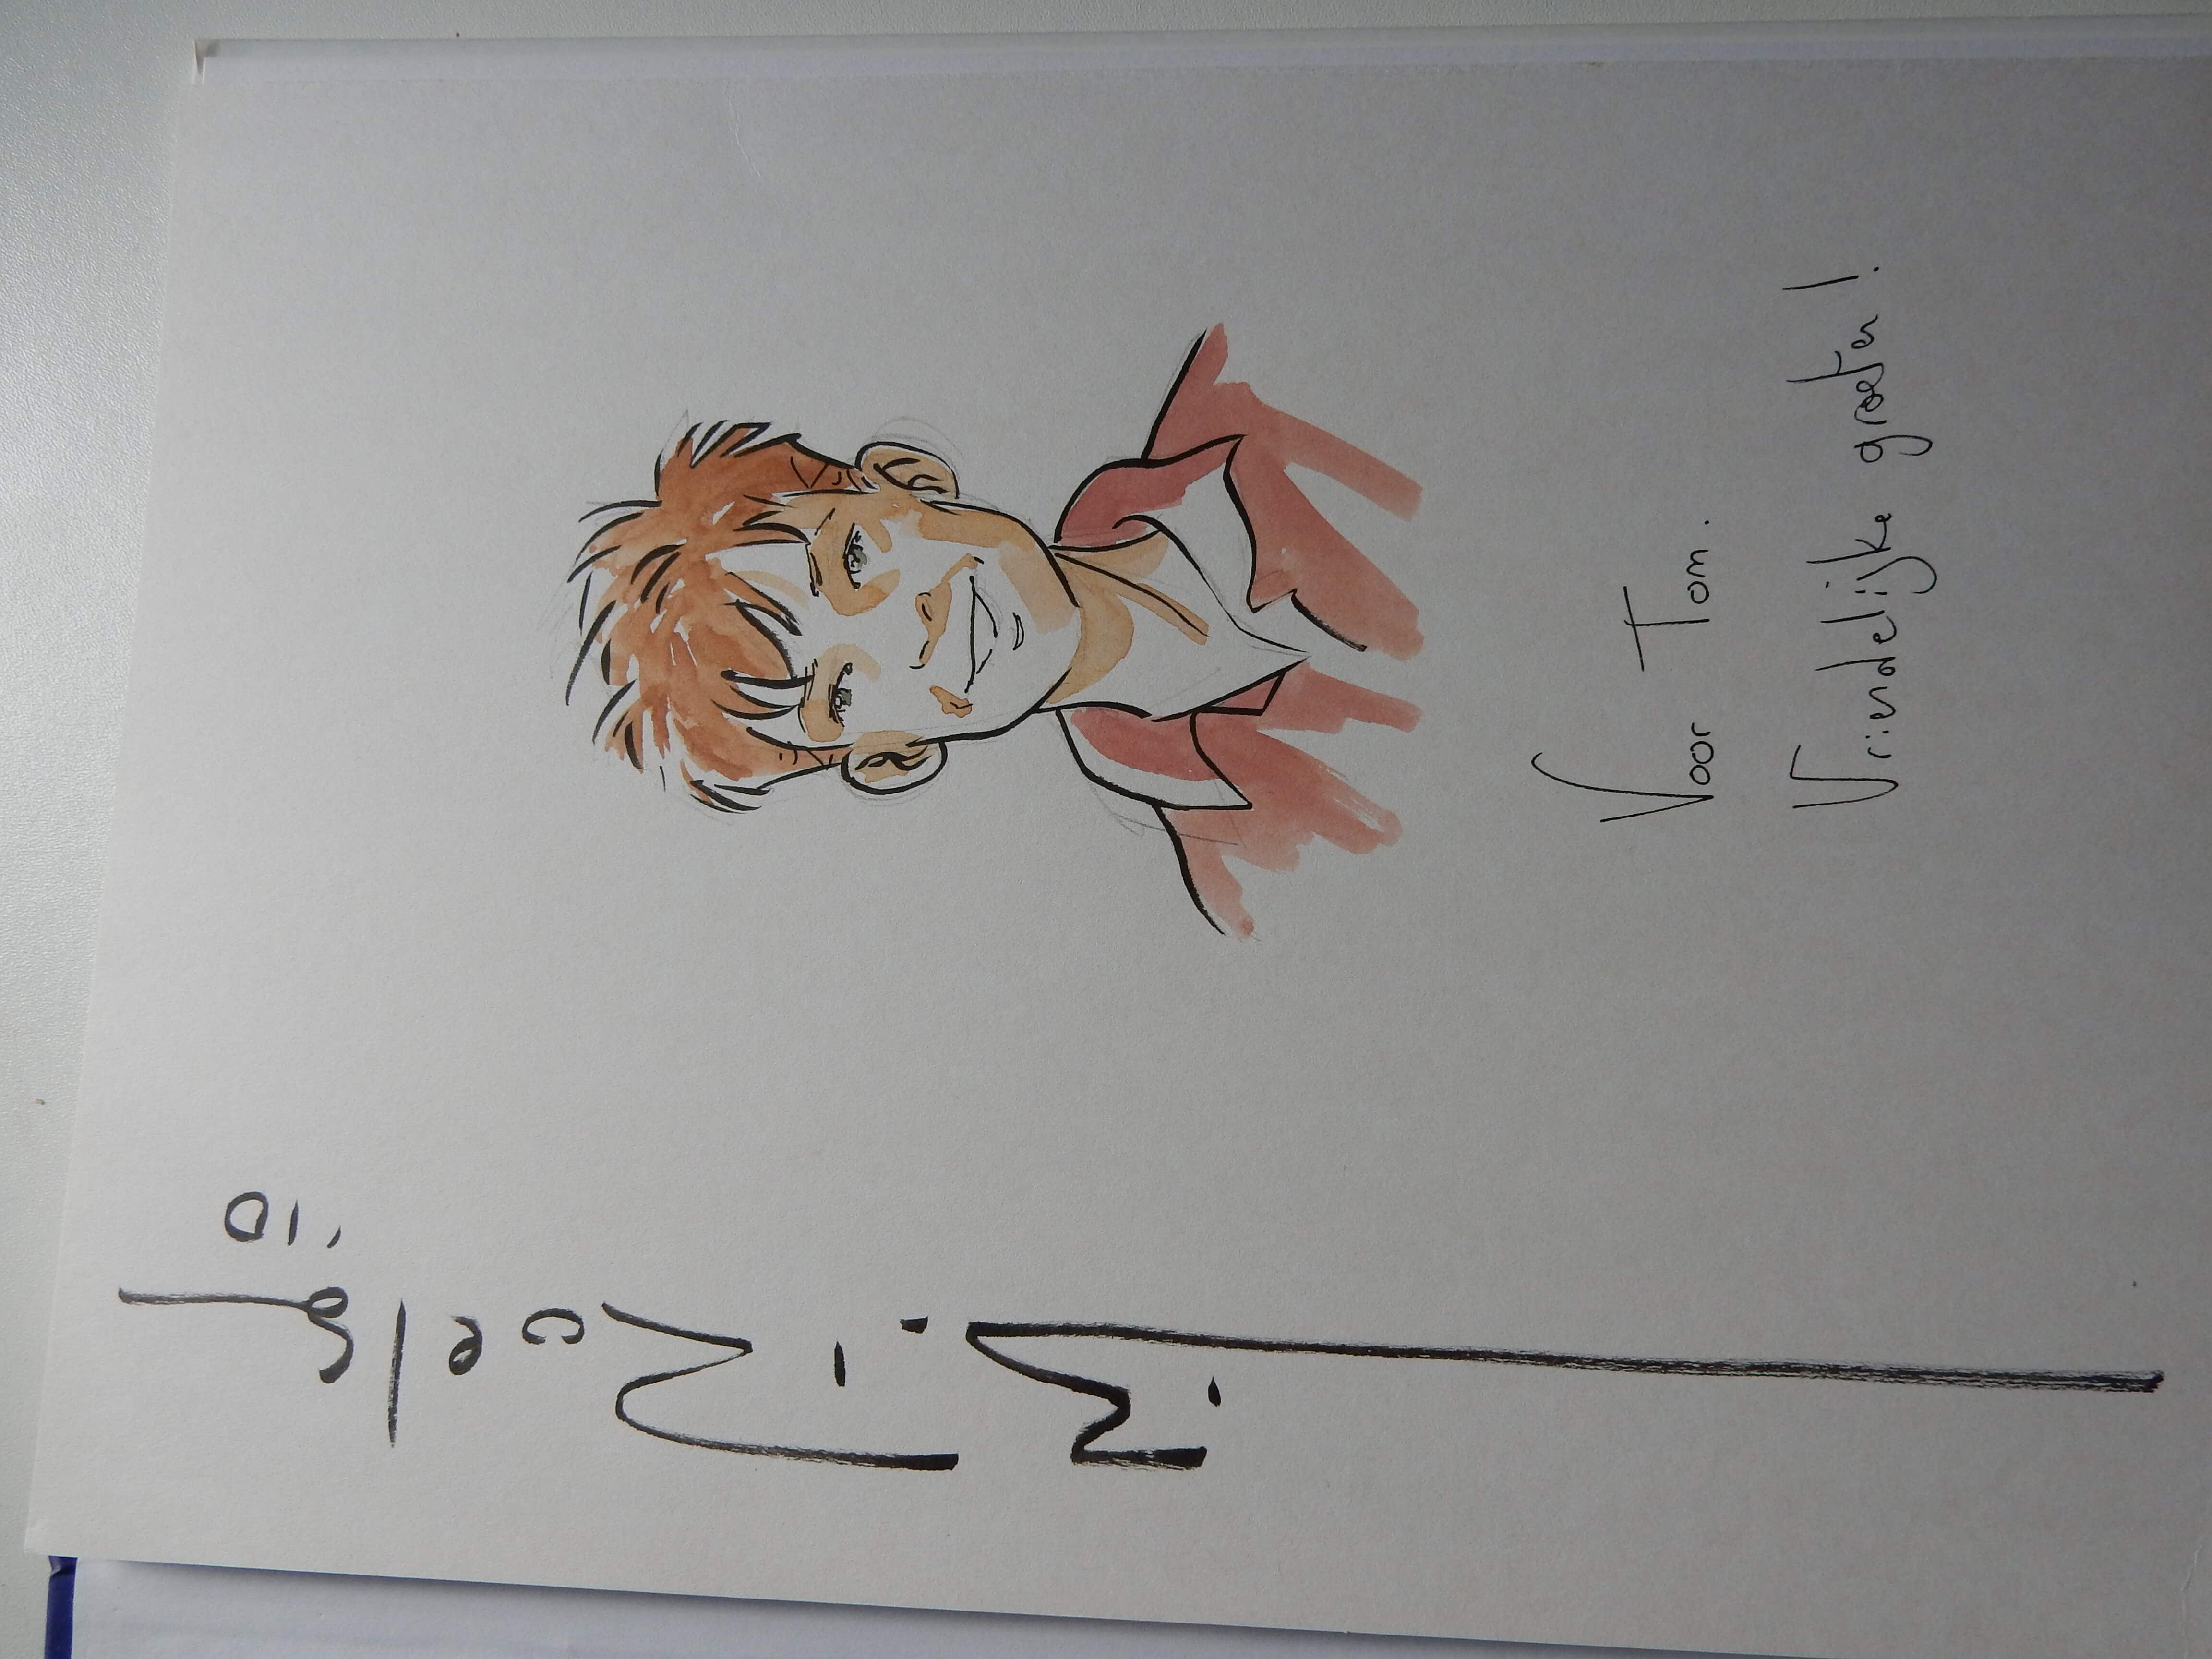 B. Roels
'10
Voor Tom.
Vriendelijke groeten!